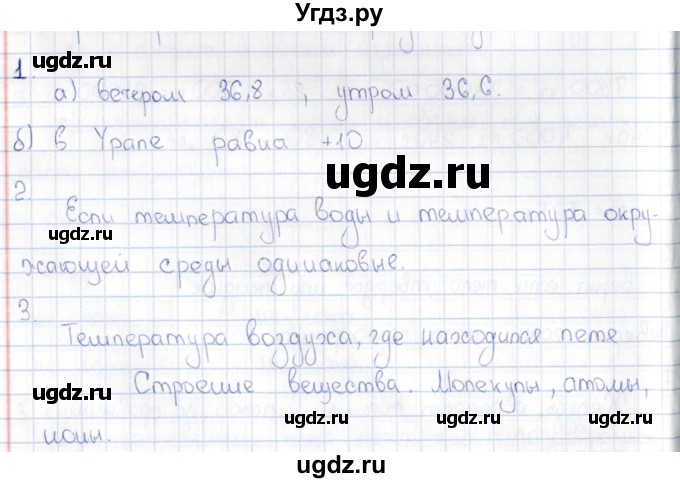 Угдз.ру
1.
а) вечером 36,8 ; утром 36,6.
б) в Урале равна +10
2.
Если температура воды и температура окру-
жающей среды одинаковые.
3.
Температура воздуха, где находился пете
Строение вещества. Молекулы, атомы,
ионы.
ugdz.ru
ugdz.ru
ugdz.ru
ugdz.ru
ugdz.ru
ugdz.ru
ugdz.ru
ugdz.ru
ugdz.ru
ugdz.ru
ugdz.ru